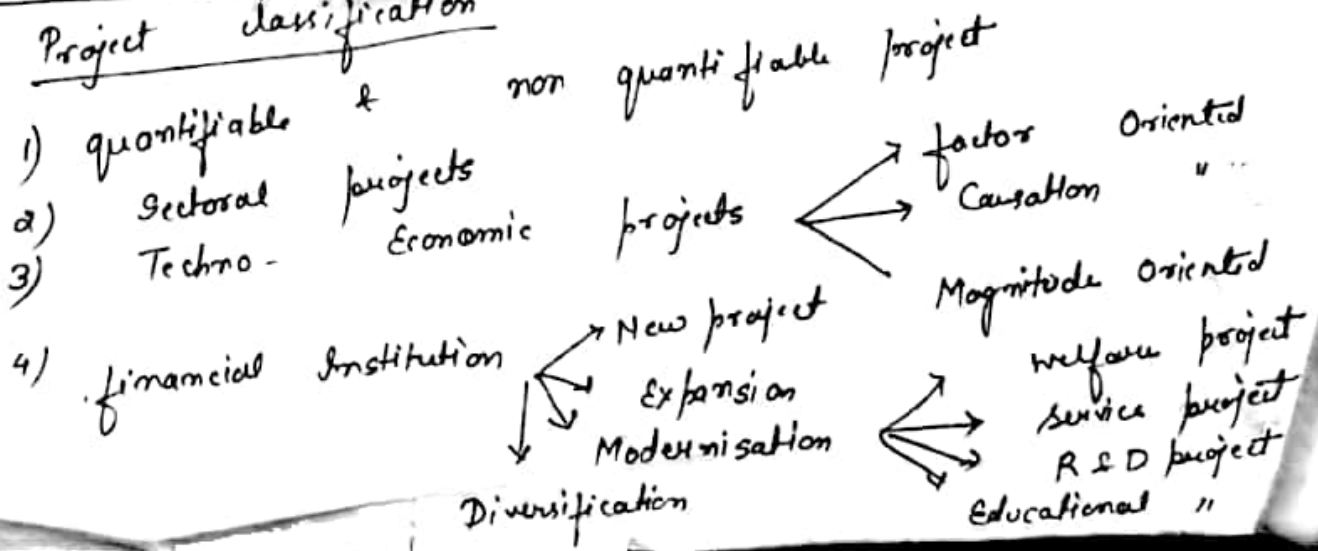 Project classification
1) quantifiable & non quantifiable project
2) Sectoral projects
3) Techno - Economic projects
factor Oriented
Causation "
Magnitude Oriented
4) financial Institution
New project
Expansion
Modernisation
Diversification
welfare project
service project
R & D project
Educational "